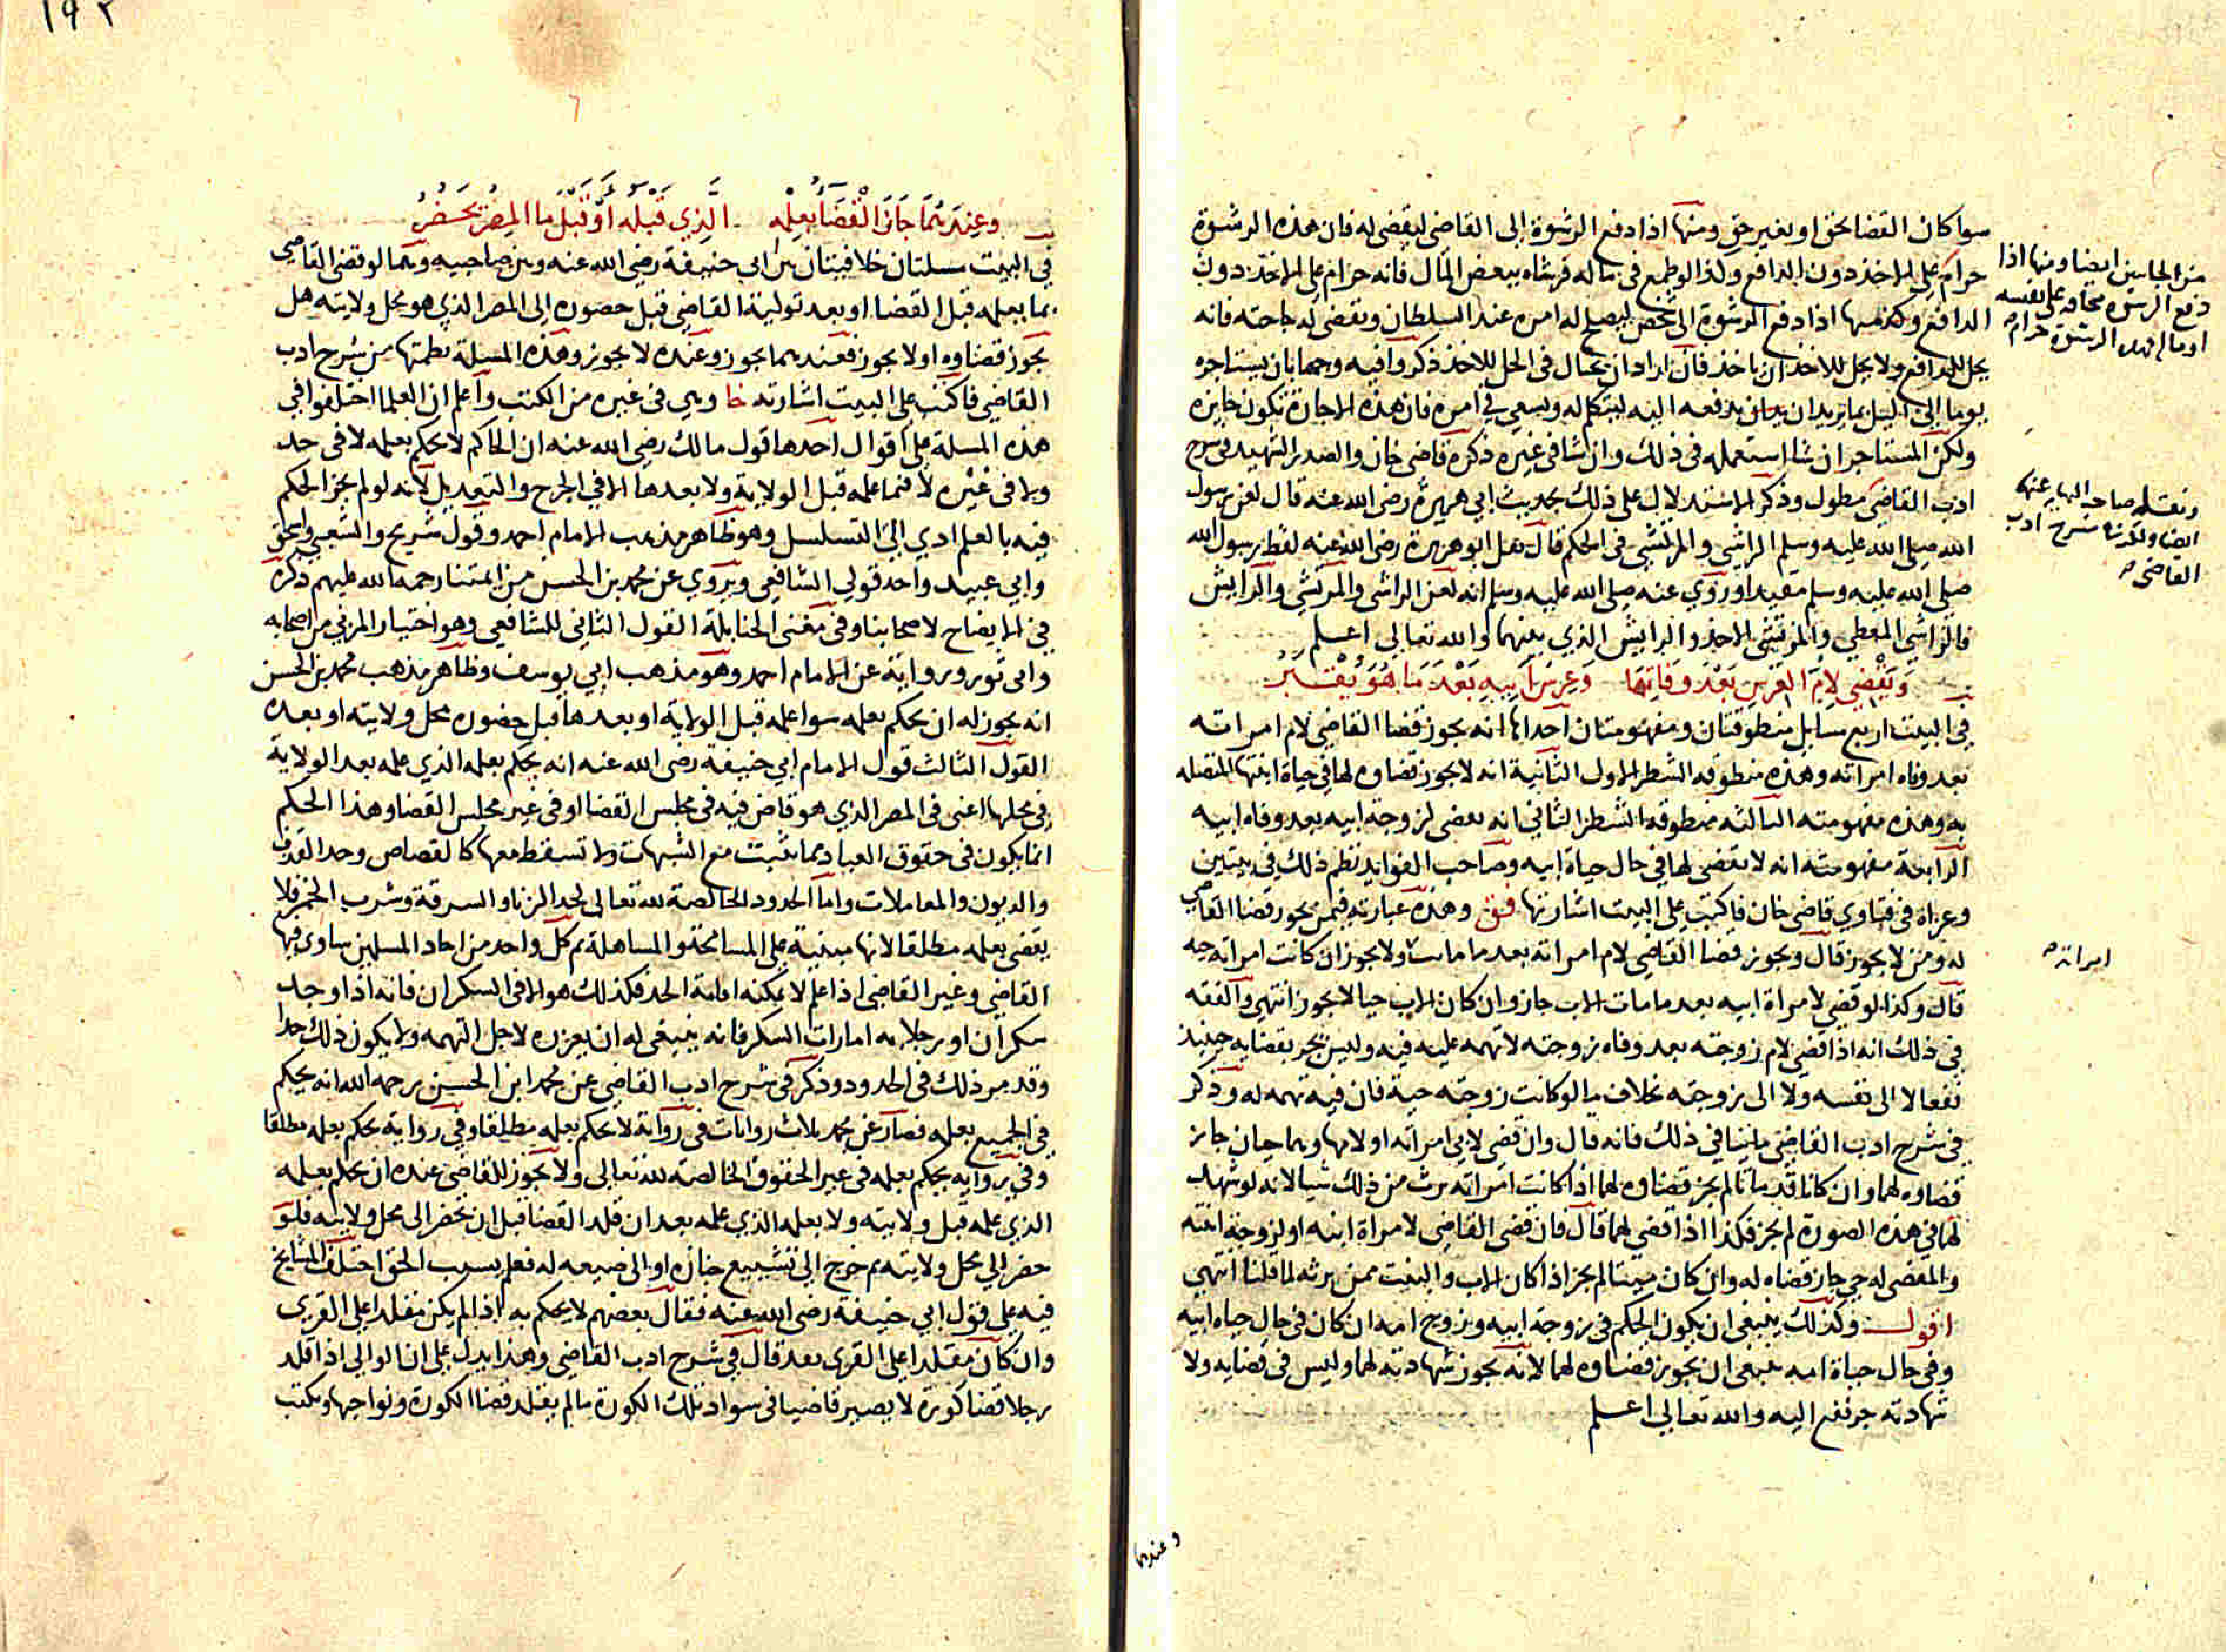 سوا كان القضا بحق او بغير حق ومنها اذا دفع الرشوة الى القاضى ليقضى له فان هذه الرشوة
حرام على الاخذ دون الدافع ولذا لو طمع فى ماله فرشاه ببعض المال فانه حرام على الاخذ دون
الدافع وكذا منها اذا دفع الرشوة الى شخص ليصلح له امره عند السلطان ويقضى له حاجته فانه
يحل للدافع ولا يحل للاخذ ان ياخذ فان اراد ان يحتال فى الحل للاخذ ذكروا فيه وجها بان يستاجره
يوما الى الليل بما يريدان يدفعه اليه ليتكلم له ويسعى فى امره فان هذه الاجارة تكون جايزه
ولكن المستاجر ان شا استعمله فى ذلك وان شا فى غيره ذكره قاضى خان والصدر الشهيد فى شرح
ادب القاضى مطول وذكر الاستدلال على ذلك بحديث ابى هريرة رضى الله عنه قال لعن رسول
الله صلى الله عليه وسلم الراشى والمرتشى فى الحكم قال نقل ابو هريرة رضى الله عنه لفظ رسول الله
صلى الله عليه وسلم مقيدا وروى عنه صلى الله عليه وسلم انه لعن الراشى والمرتشى والرايش
فالراشي المعطي والمرتشى الاخذ والرايش الذي بينهما والله تعالى اعلم
ويقضي لام العرس بعد وفاتها وعرس ابيه بعد ما هو يقبر
في البيت اربع مسايل منطوقتان ومفهومتان احداها انه يجوز قضا القاضى لام امراته
بعد وفاه امراته وهذه منطوقه الشطر الاول الثانية انه لا يجوز قضاوه لها في حياة ابنتها المتصله
به وهذه مفهومته الثالثه منطوقه الشطر الثاني انه يقضى لزوجة ابيه بعد وفاه ابيه
الرابعة مفهومته انه لا يقضى لها فى حال حياة ابيه وصاحب الفوايد نظم ذلك فى بيتين
وعزاه فى فتاوي قاضى خان فاكتب على البيت اشارتها فق وهذه عبارته فيمن يجوز قضا القاضى
له ومن لا يجوز قال ويجوز قضا القاضى لام امراته بعد ما ماتت ولا يجوز ان كانت امراته حيه
قال وكذا لو قضى لامراة ابيه بعد ما مات الاب جاز وان كان الاب حيا لا يجوز انتهى والفقه
فى ذلك انه اذا قضى لام زوجته بعد وفاه زوجته لا تهمه عليه فيه وليس يجر بقضايه حينيذ
نفعا لا الى نفسه ولا الى زوجته بخلاف ما لو كانت زوجته حية فان فيه تهمه له وذكر
فى شرح ادب القاضى ما ينافي ذلك فانه قال وان قضى لابى امراته او لامها وهما حيان جاز
قضاوه لهما وان كانا قد ماتا لم يجز قضاوه لهما اذا كانت امراته ترث من ذلك شيا لانه لو شهد
لهما فى هذه الصورة لم يجز فكذا اذا قضى لهما قال فان قضى القاضى لامراة ابنه او لزوج ابنته
والمقضى له حي جاز قضاه له وان كان ميتا لم يجز اذا كان الاب والبنت ممن يرثه لما قلنا انتهي
اقول وكذلك ينبغى ان يكون الحكم فى زوجة ابيه وزوج امه ان كان فى حال حياه ابيه
وفى حال حياة امه ينبغى ان يجوز قضاوه لهما لانه يجوز شهادته لهما وليس فى قضايه ولا
شهادته جر نفع اليه والله تعالى اعلم
من الجانبين ايضا ومنها اذا
دفع الرشوه مخافه على نفسه
او ماله فهذه الرشوة حرام
ونقله صاحب النهايه عنها
ايضا ولكن شرح ادب
القاضى
امراته
وعندهما
١٩٢
وعندهما جاز القضا بعلمه الذي قبله او قبل ما المصر يحضر
في البيت مسلتان خلافيتان بين ابى حنيفة رضى الله عنه وبين صاحبيه وهما لو قضى القاضى
بما يعلمه قبل القضا او بعد تولية القاضى قبل حضوره الى المصر الذي هو محل ولايته هل
يجوز قضاوه او لا يجوز فعندهما يجوز وعنده لا يجوز وهذه المسلة نظمتها من شرح ادب
القاضي فاكتب على البيت اشارته خا وهى فى غيره من الكتب واعلم ان العلما اختلفوا فى
هذه المسلة على اقوال احدها قول مالك رضى الله عنه ان الحاكم لا يحكم بعلمه لا فى حد
ولا فى غيره لا فيما علمه قبل الولاية ولا بعدها الا فى الجرح والتعديل لانه لو لم يجز الحكم
فيه بالعلم ادي الى التسلسل وهو ظاهر مذهب الامام احمد وقول شريح والشعبى واسحق
وابي عبيد واحد قولي الشافعي ويروي عن محمد بن الحسن من ايمتنا رحمه الله عليهم ذكره
فى الايضاح لاصحابنا وفى مغنى الحنابلة القول الثانى للشافعي وهو اختيار المزنى من اصحابه
وابى ثور ورواية عن الامام احمد وهو مذهب ابى يوسف وظاهر مذهب محمد بن الحسن
انه يجوز له ان يحكم بعلمه سوا علمه قبل الولاية او بعدها قبل حضوره محل ولايته او بعده
القول الثالث قول الامام ابي حنيفة رضى الله عنه انه يحكم بعلمه الذي علمه بعد الولاية
فى محلها اعنى فى المصر الذي هو قاض فيه فى مجلس القضا او فى غير مجلس القضا وهذا الحكم
انما يكون فى حقوق العباد مما يثبت مع الشبهات ولا تسقط معها كالقصاص وحد القذف
والديون والمعاملات واما الحدود الخالصة لله تعالى كحد الزنا والسرقة وشرب الخمر فلا
يقضى بعلمه مطلقا لانها مبنية على المسامحة والمساهلة ثم كل واحد من احاد المسلمين ساوى فيها
القاضي وغير القاضى اذا علم لا يمكنه اقامة الحد فكذلك هو الا فى السكران فانه اذا وجد
سكران او رجلا به امارات السكر فانه ينبغى له ان يعزره لاجل التهمه ولا يكون ذلك حدا
وقد مر ذلك فى الحدود وذكر فى شرح ادب القاضى عن محمد ابن الحسن رحمه الله انه يحكم
فى الجميع بعلمه فصار عن محمد ثلاث روايات فى رواية لا يحكم بعلمه مطلقا وفى رواية يحكم بعلمه مطلقا
وفى روايه يحكم بعلمه فى غير الحقوق الخالصة لله تعالى ولا يجوز للقاضى عنده ان يحكم بعلمه
الذي علمه قبل ولايته ولا بعلمه الذي علمه بعد ان قلد القضا قبل ان يحضر الى محل ولايته فلو
حضر الى محل ولايته ثم خرج الى تشييع جنازه او الى ضيعه له فعلم بسبب الحق اختلف المشايخ
فيه على قول ابي حنيفة رضى الله عنه فقال بعضهم لا يحكم به اذا لم يكن مقلدا على القرى
وان كان مقلدا على القرى بعد قال فى شرح ادب القاضى وهذا يدل على ان الوالى اذا قلد
رجلا قضا كورة لا يصير قاضيا فى سواد تلك الكورة ما لم يقلد قضا الكورة ونواحيها ويكتب